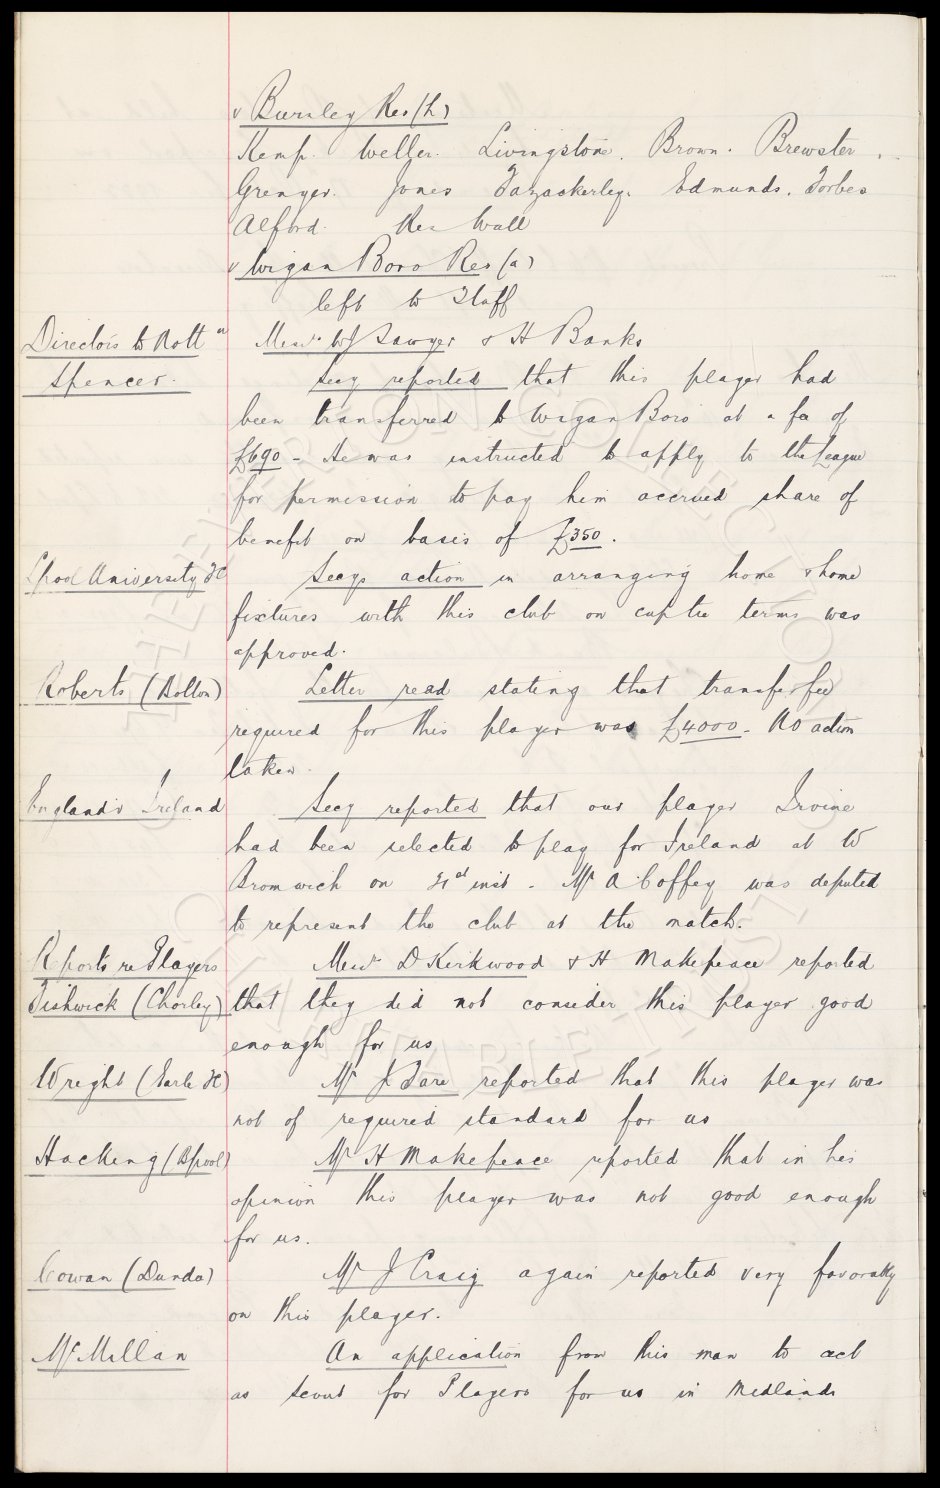 v Burnley Res (h)
Kemp. Weller. Livingstone. Brown. Brewster.
Grenyer. Jones Fazackerley. Edmunds. Forbes
Alford. Res Wall
v Wigan Boro Res (a)
left to Staff
Directors to Nott Messrs W J Sawyer & H Banks
Spencer. Secy reported that this player had
been transferred to Wigan Boro at a fee of
£690 - He was instructed to apply to the League
for permission to pay him accrued share of
benefit on basis of £350.
Lpool University FC Secys action in arranging home & home
fixtures with this club on cup tie terms was
approved.
Roberts (Bolton) Letter read stating that transfer fee
required for this player was £4000. No action
taken.
England v Ireland Secy reported that our player Irvine
had been selected to play for Ireland at W
Bromwich on 21st inst. Mr A Coffey was deputed
to represent the club at the match.
Reports re Players Messrs D Kirkwood & H Makepeace reported
Fishwick (Chorley) that they did not consider this player good
enough for us
Wright (Earle FC) Mr J Fare reported that this player was
not of required standard for us
Hacking (Bpool) Mr H Makepeace reported that in his
opinion this player was not good enough
for us.
Cowan (Dundee) Mr J Craig again reported very favorably
on this player.
McMillan An application from this man to act
as Scout for Players for us in Midlands
THE EVERTON COLLECTION
CHARITABLE TRUST